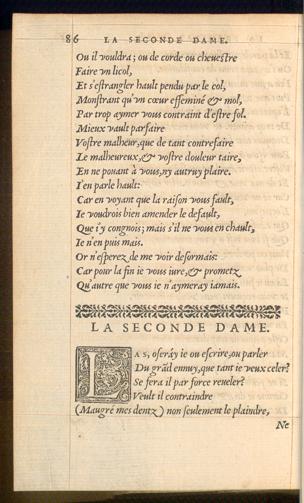 86 LA SECONDE DAME.
Ou il vouldra; ou de corde ou cheuestre
Faire vn licol,
Et s'estrangler hault pendu par le col,
Monstrant qu'vn cœur effeminé & mol,
Par trop aymer vous contraint d'estre fol.
Mieux vault parfaire
Vostre malheur, que de tant contrefaire
Le malheureux, & vostre douleur taire,
En ne pouant à vous, ny autruy plaire.
I'en parle hault:
Car en voyant que la raison vous fault,
Ie voudrois bien amender le default,
Que i'y congnois; mais s'il ne vous en chault,
Ie n'en puis mais.
Or n'esperez de me voir desormais:
Car pour la fin ie vous iure, & prometz
Qu'autre que vous ie n'aymeray iamais.
LA SECONDE DAME.
LAS, oseráy ie ou escrire, ou parler
Du grãd ennuy, que tant ie veux celer?
Se fera il par force reueler?
Veult il contraindre
(Maugré mes dentz) non seulement le plaindre,
Ne